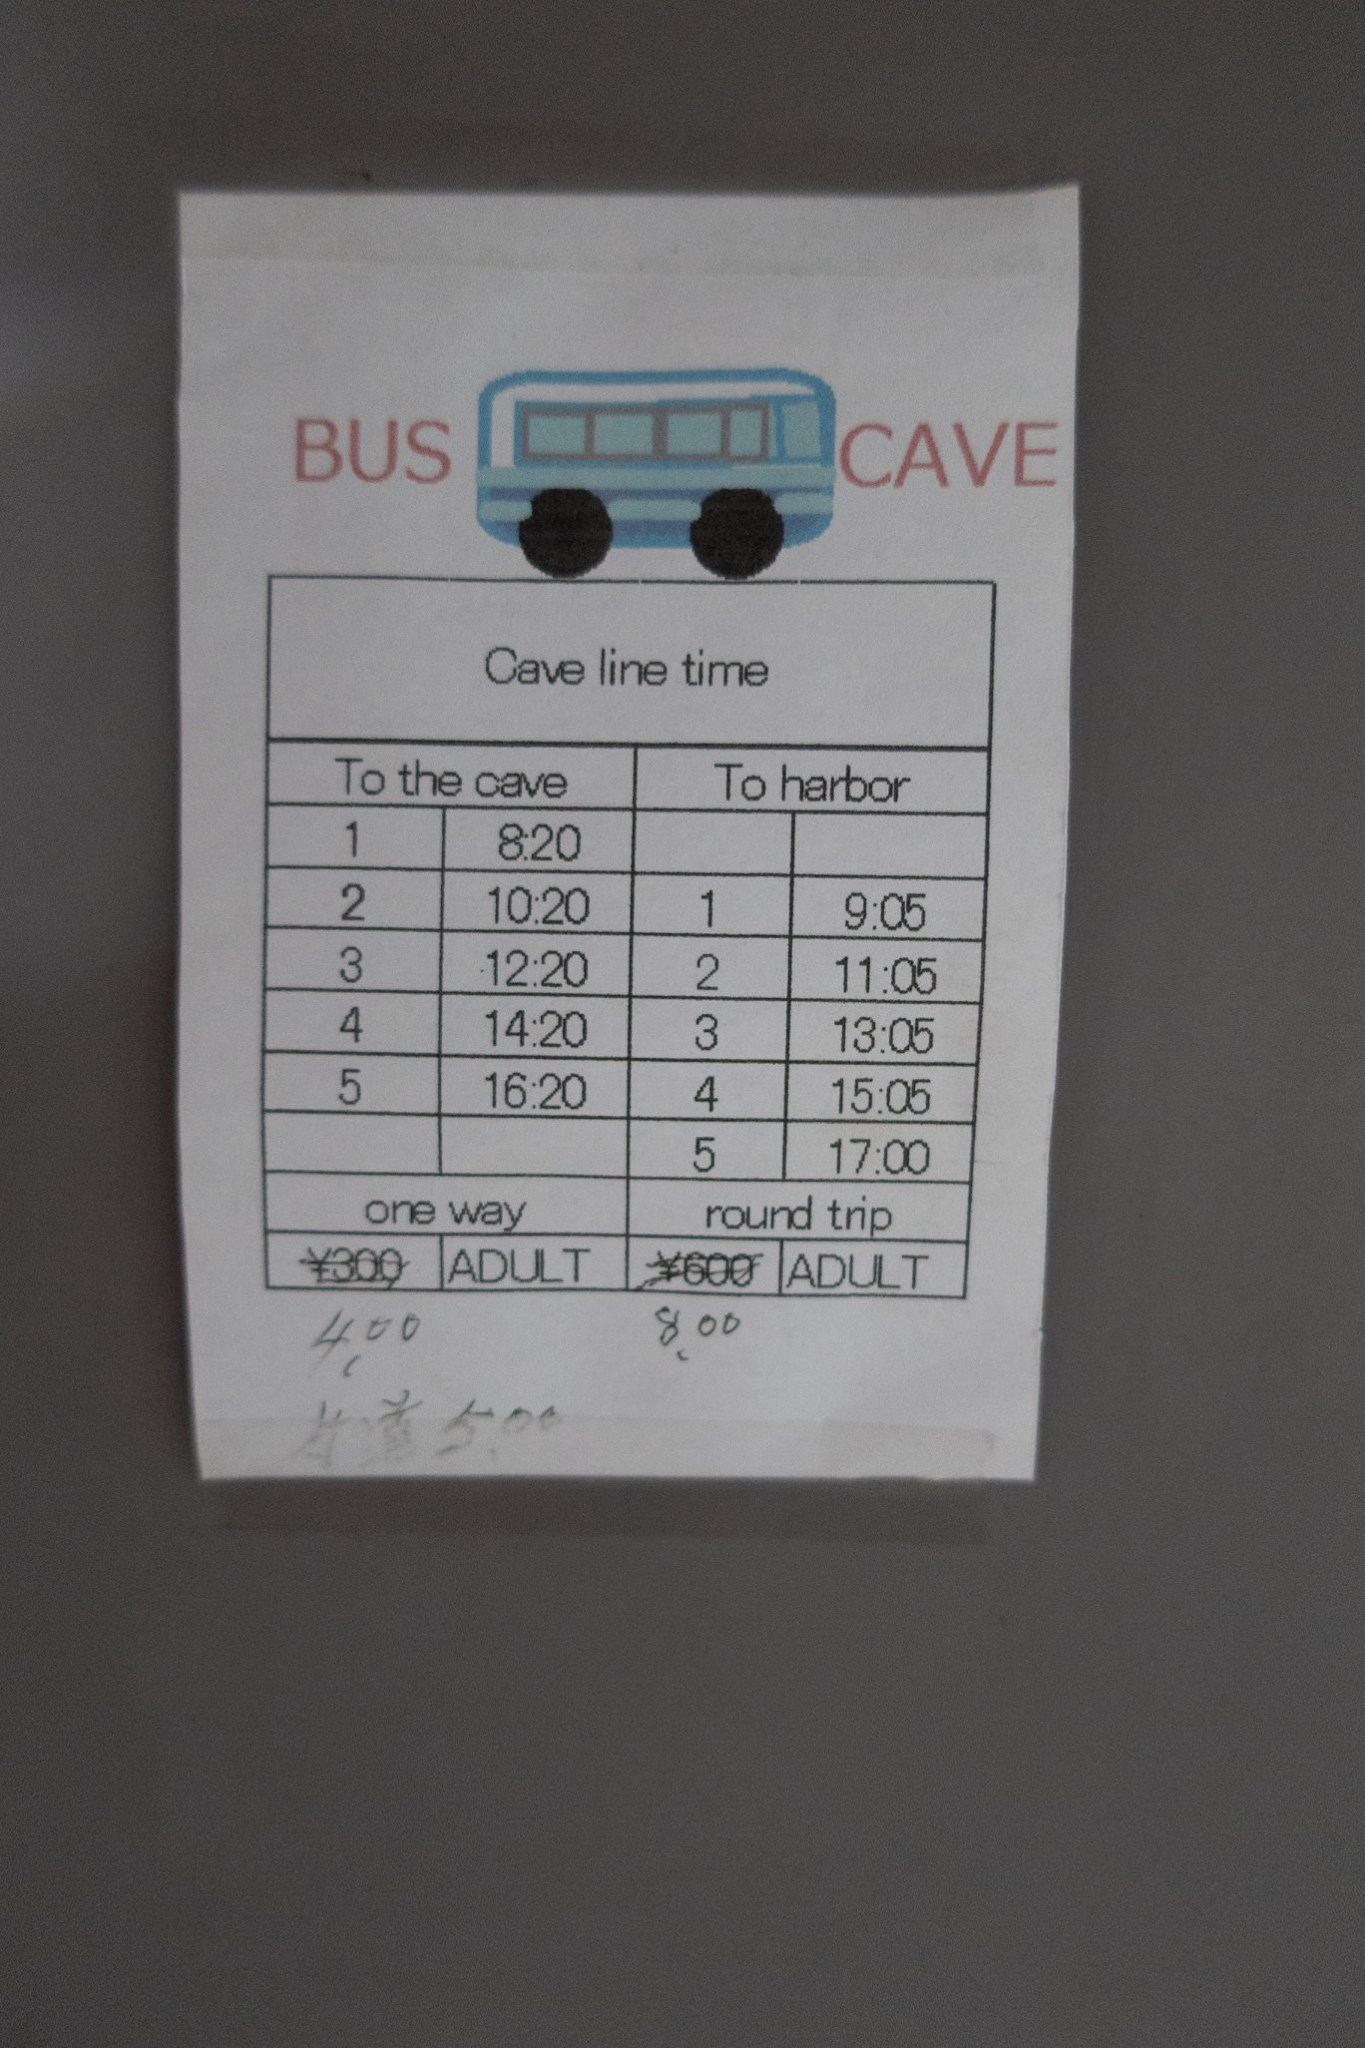 BUS CAVE
Cave line time
To the cave To harbor
1 8:20
2 10:20 1 9:05
3 12:20 2 11:05
4 14:20 3 13:05
5 16:20 4 15:05
5 17:00
one way round trip
¥300 ADULT ¥600 ADULT
4,00 8,00
5,00